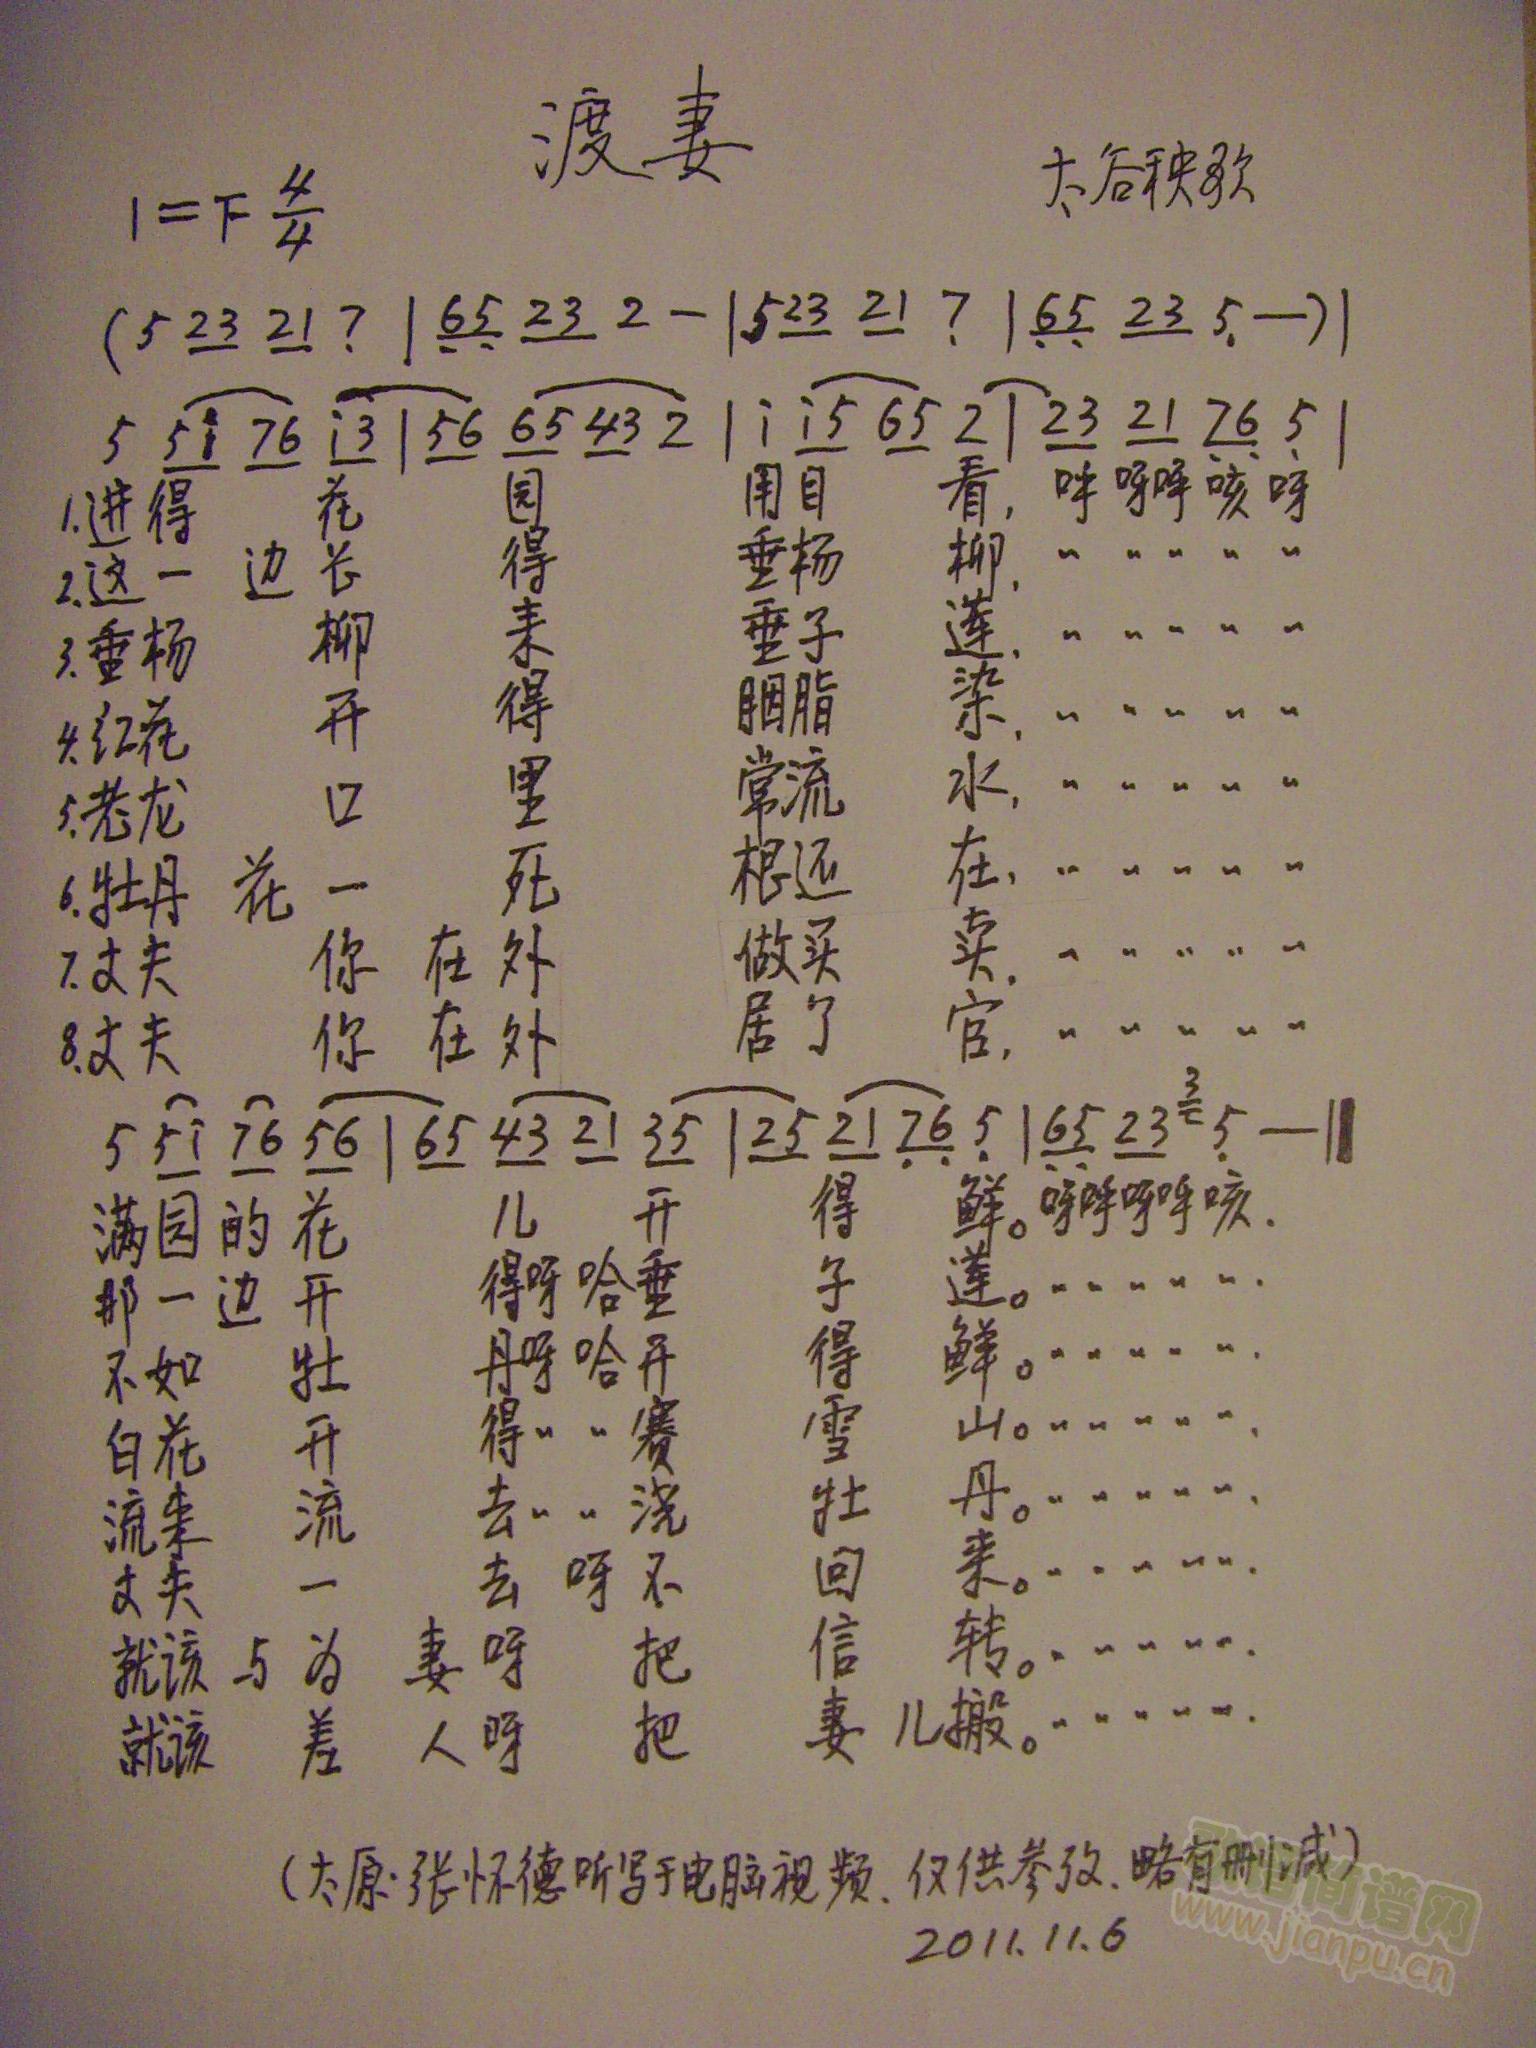 渡妻
太谷秧歌
1=下 4/4
(5 23 21 7 | 65 23 2 - | 523 21 7 | 65 23 5 —) |
5 5i 76 i3 | 56 65 43 2 | i i5 65 2 | 23 21 76 5 |
1.进得 花 园 用目 看, 呀呀呀咳呀
2.这一边长 得 垂杨 柳, 〃 〃 〃 〃 〃
3.垂杨 柳 来 垂子 莲, 〃 〃 〃 〃 〃
4.红花 开 得 胭脂 染, 〃 〃 〃 〃 〃
5.老龙 口 里 常流 水, 〃 〃 〃 〃 〃
6.牡丹花一 死 根还 在, 〃 〃 〃 〃 〃
7.丈夫 你在外 做买 卖, 〃 〃 〃 〃 〃
8.丈夫 你在外 居了 官, 〃 〃 〃 〃 〃
5 5i 76 56 | 65 43 21 35 | 25 21 76 5 | 65 23 3 5 — ‖
满园的花 儿 开 得 鲜。呀呼呀呼咳.
那一边开 得呀哈垂 子 莲。〃 〃 〃 〃 〃.
不如 牡 丹呀哈开 得 鲜。〃 〃 〃 〃 〃.
白花 开 得〃 〃赛 雪 山。〃 〃 〃 〃 〃.
流来 流 去〃 〃浇 牡 丹。〃 〃 〃 〃 〃.
丈夫 一 去 呀不 回 来。〃 〃 〃 〃 〃.
就该与为 妻呀 把 信 转。〃 〃 〃 〃 〃.
就该 差 人呀 把 妻儿搬。〃 〃 〃 〃 〃.
(太原·张怀德听写于电脑视频、仅供参考、略有删减)
2011.11.6
简谱网
www.jianpu.cn